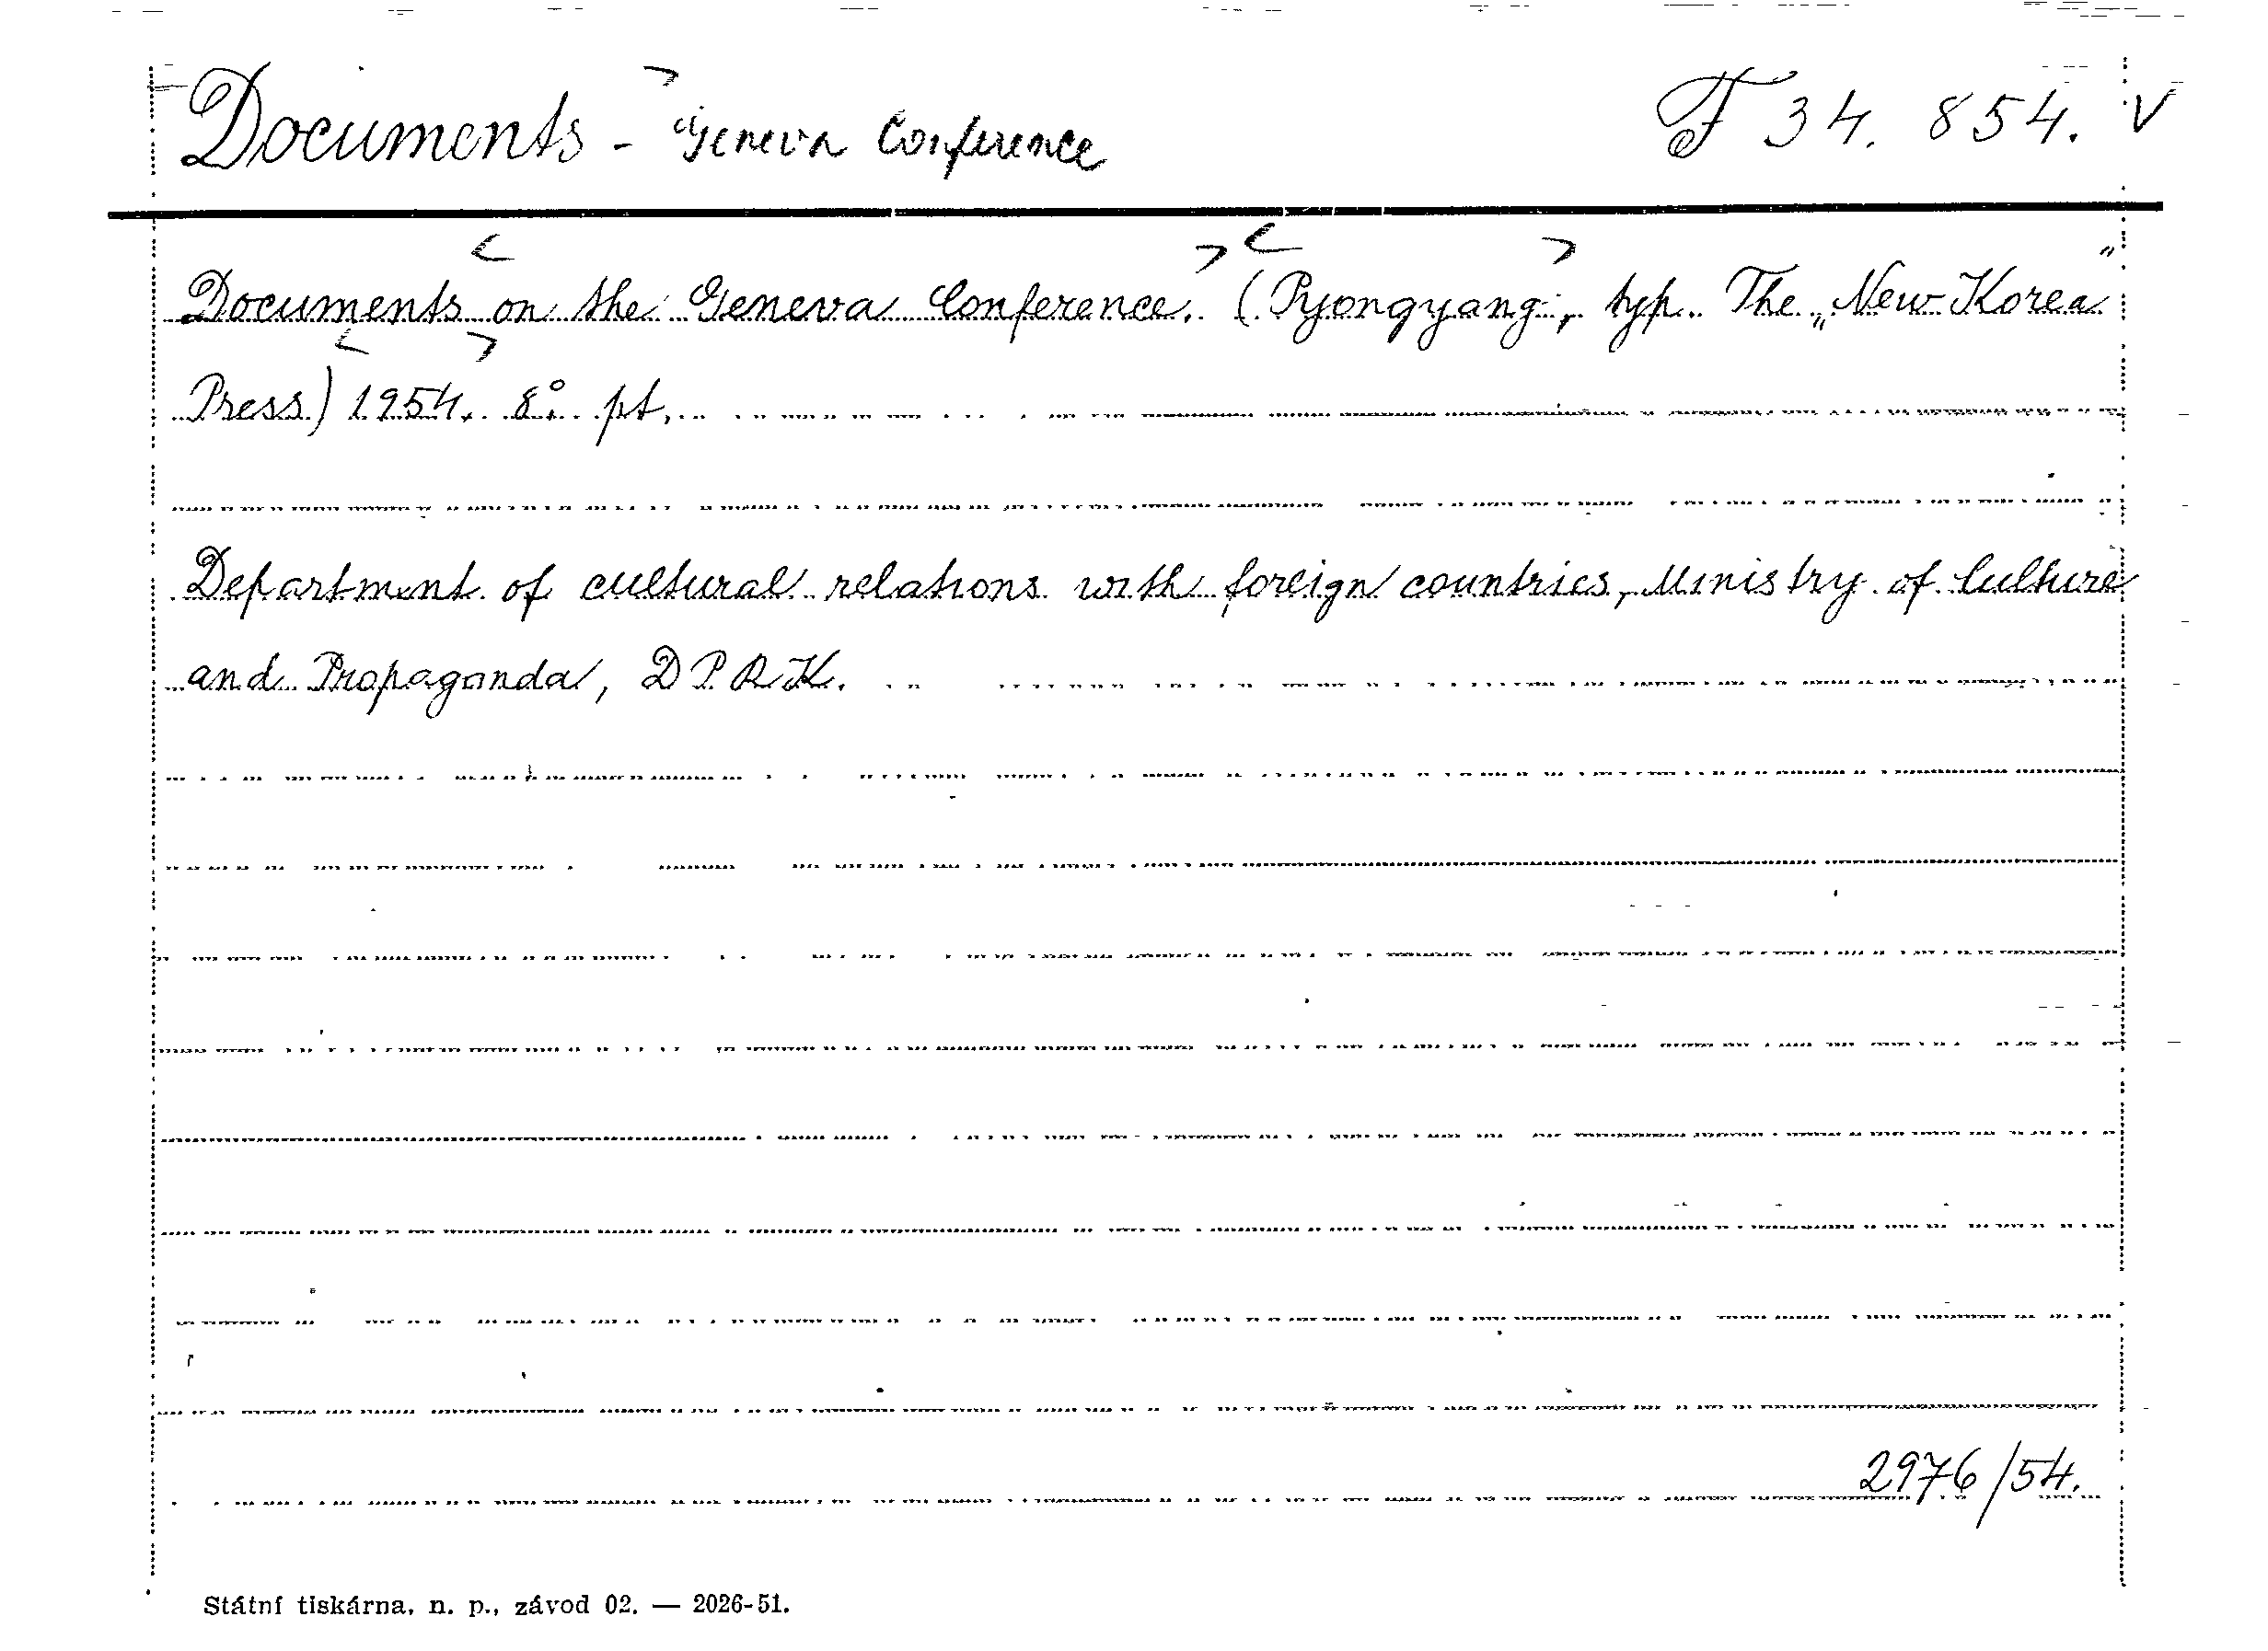 Documents - Geneva Conference F 34. 854. V
Documents on the Geneva Conference. (Pyongyang, typ. The „New Korea"
Press) 1954. 8°. pt.
Department of cultural relations with foreign countries, Ministry of Culture
and Propaganda, D P. R. K.
2976/54.
Státní tiskárna, n. p., závod 02. — 2026-51.